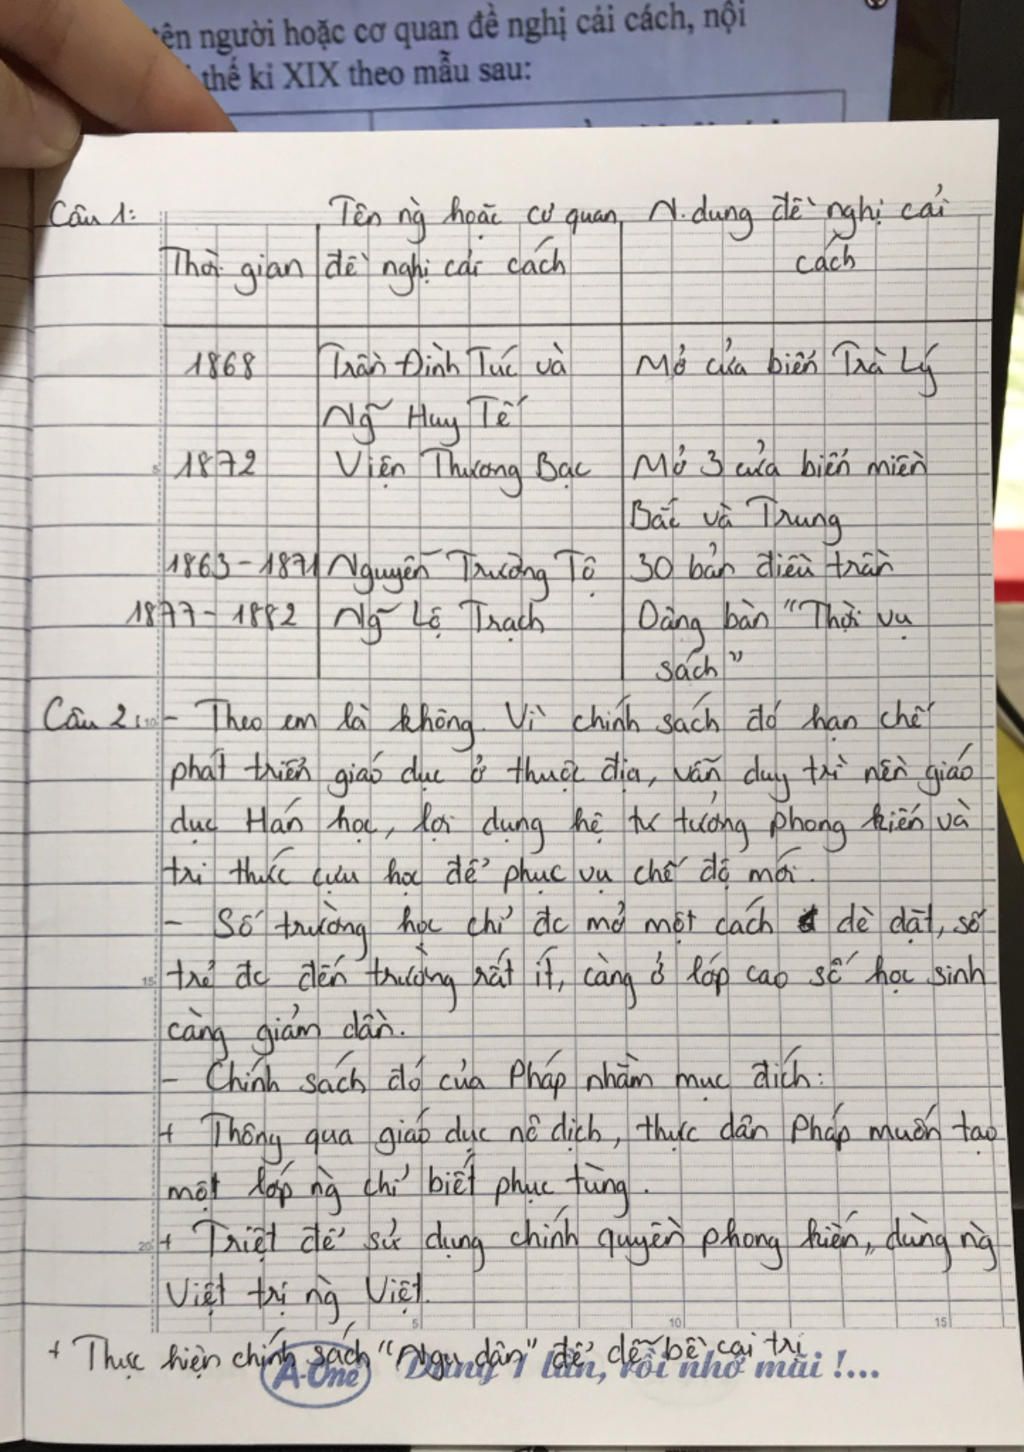 tên người hoặc cơ quan đề nghị cải cách, nội
thế kỉ XIX theo mẫu sau:
Câu 1:
Thời gian | Tên ng` hoặc cơ quan đề nghị cải cách | N.dung đề nghị cải cách
1868 | Trần Đình Túc và | Mở cửa biến Trà Lý
Ng~ Huy Tế
1872 | Viện Thương Bạc | Mở 3 cửa biến miền
Bắc và Trung
1863-1871 | Nguyễn Trường Tộ | 30 bản điều trần
1877-1882 | Ng~ Lộ Trạch | Dâng bàn "Thời vụ
sách"
Câu 2: - Theo em là không. Vì chính sách đó hạn chế
phát triển giáo dục ở thuộc địa, vẫn duy trì nền giáo
dục Hán học, lợi dụng hệ tư tưởng phong kiến và
tri thức cựu học để phục vụ chế độ mới.
- Số trường học chỉ đc mở một cách dè dặt, số
trẻ đc đến trường rất ít, càng ở lớp cao số học sinh
càng giảm dần.
- Chính sách đó của Pháp nhằm mục đích:
+ Thông qua giáo dục nô dịch, thực dân Pháp muốn tạo
một lớp ng` chỉ biết phục tùng.
+ Triệt để sử dụng chính quyền phong kiến, dùng ng`
Việt trị ng` Việt.
+ Thực hiện chính sách "Ngu dân" để dễ bề cai trị
A-One Dùng 1 lần, rồi nhớ mãi !...